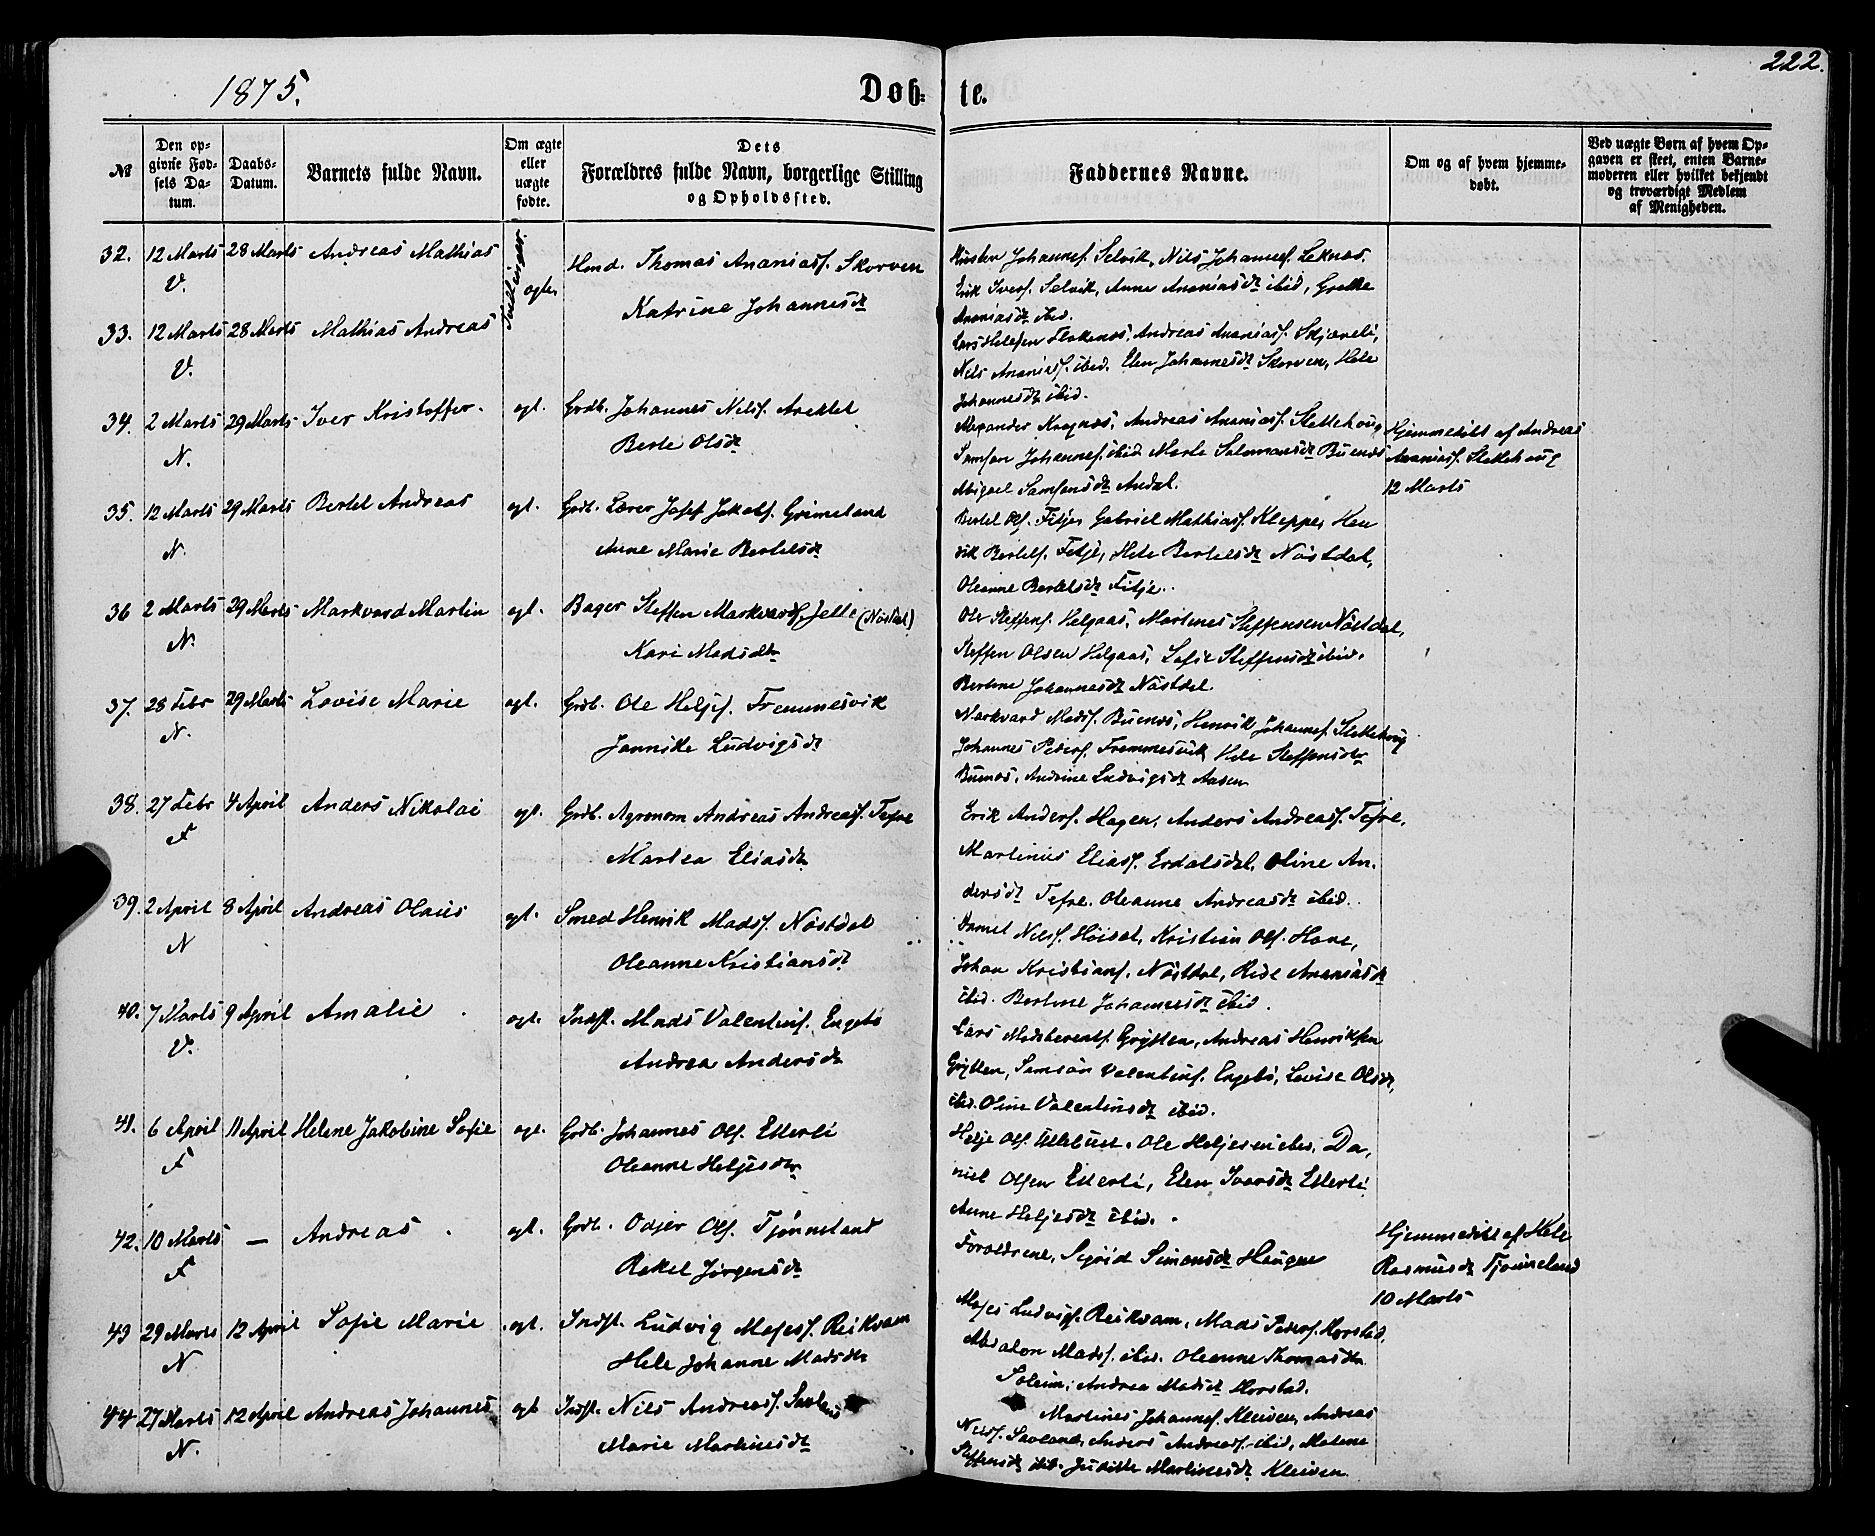 222.
1875.
Døb- te.
№
Den op-
givne Fød-
sels Da-
tum.
Daabs-
Datum.
Barnets fulde Navn.
Om ægte
eller
uægte
fødte.
Dets
Forældres fulde Navn, borgerlige Stilling
og Opholdssted.
Faddernes Navne.
Om og af hvem hjemme-
døbt.
Ved uægte Børn af hvem Op-
gaven er skeet, enten Barne-
moderen eller hvilket bekjendt
og troværdigt Medlem
af Menigheden.
32. 12 Marts 28 Marts Andreas Mathias
V.
Tvillinger.
ægte
Hmd. Thomas Ananiass. Skorven
Katrine Johannesdr
Johannes. Selvik, Nils Johannes. Leknæs.
Erik Ivers. Selvik, Anne Ananiasdr ibid, Grethe
Ananiasdr ibid.
33. 12 Marts 28 Marts Mathias Andreas
V.
Lars Andreas Ananiass.
Nils Ananiass. ibid. Elen Johannesdr Skorven, Hele
Johannesdr ibid.
34. 2 Marts 29 Marts Iver Kristoffer. ægt. Grdb. Johannes Nilss. Areklet
N.
Berte Olsdr
Alexander Andreas Ananiass. Slettehoug
Samson Johannes. ibid Marte Salamonsdr Buenæs
Abigael Samsonsdr
Hjemmedøbt af Andreas
Ananiass. Slettehoug
12 Marts
35. 12 Marts 29 Marts Bertel Andreas ægt. Grdb. Lærer Josef Jakobs. Grimeland
N.
Anne Marie Bertelsdr
Bertel Ols. Fitje, Gabriel Mathiass. Kleppe, Hen
rik Bertels. Fitje, Hele Bertelsdr Nöstdal,
Oleanne Bertelsdr Fitje.
36 2 Marts 29 Marts Markvard Martin ægt. Bager Steffen Markvards. Jelle (Nöstdal)
N.
Kari Madsdtr
Ole Steffens. Helgaas, Martines Steffensen Nöstdal,
Steffen Olsen Helgaas, Sofie Steffensdr ibid.
Bertine Johannesdr Nöstdal.
37. 28 Febr 29 Marts Lovise Marie ægt. Grdb. Ole Heljes. Fremmesvik
N.
Jannike Ludvigsdr
Markvard Madss. Buenæs, Henrik Johannes. Slettehoug
Johannes Peders. Fremmesvik, Hele Steffensdtr
Buenæs, Andrine Ludvigsdr Aasen
38. 27 Febr 4 April Anders Nikolai ægt. Grdb. Agronom Andreas Andreass. Tefre
F
Martea Eliasdr
Erik Anders. Hagen, Anders Andreass. Tefre,
Martinus Eliass. Erdalsdal, Oline An-
dersdr Tefre. Oleanne Andreasdr ibid.
39. 2 April 8 April Andreas Olaus ægt. Smed Henrik Madss. Nöstdal
N
Oleanne Kristiansdr
Daniel Nilss. Höidal, Kristian Ols. Hove,
Johan Kristians. Nöstdal, Ananiasdr
ibid. Bertine Johannesdr ibid.
40. 7 Marts 9 April Amalie ægt. Indst. Mads Valentins. Engebö
V.
Andrea Andersdr
Lars Grytten, Andreas Henriksen
Grytten, Samson Valentins. Engebö, Lovise Olsdr,
ibid. Oline Valentinsdr ibid.
41. 6 April 11 April Helene Jakobine Sofie ægt. Grdb. Johannes Ols. Ellerli
F
Oleanne Heljesdtr
Helje Ols. Ullebust. Ole Da,
niel Olsen Ellerli, Elen Iversdr Ellerli
Anne Heljesdr ibid.
42. 10 Marts — Andreas ægt. Grdb. Odjer Ols. Tjönneland
F
Rakel Jörgensdr
Forældrene, Sigrid Simonsdr Haugen
Hjemmedöbt af Hele
Rasmusdr Tjönneland
10 Marts
43 29 Marts 12 April Sofie Marie ægt. Indst. Ludvig Moses. Reikvam
N
Hele Johanne Madsdtr
Moses Ludvigs. Reikvam, Mads Peders. Horstad,
Absalon Madss. ibid. Oleanne Thomasdtr
Soleim, Andrea Madsdr Horstad.
44 27 Marts 12 April Andreas Johannes ægt Indst. Nils Andreass. Savland
N.
Marie Martinusdr
Martines Johannes. Kleiven, Andreas
Nilss. Savland, Anders Andreass. ibid, Malene
Steffensdr ibid. Judithe Martinesdr Kleiven